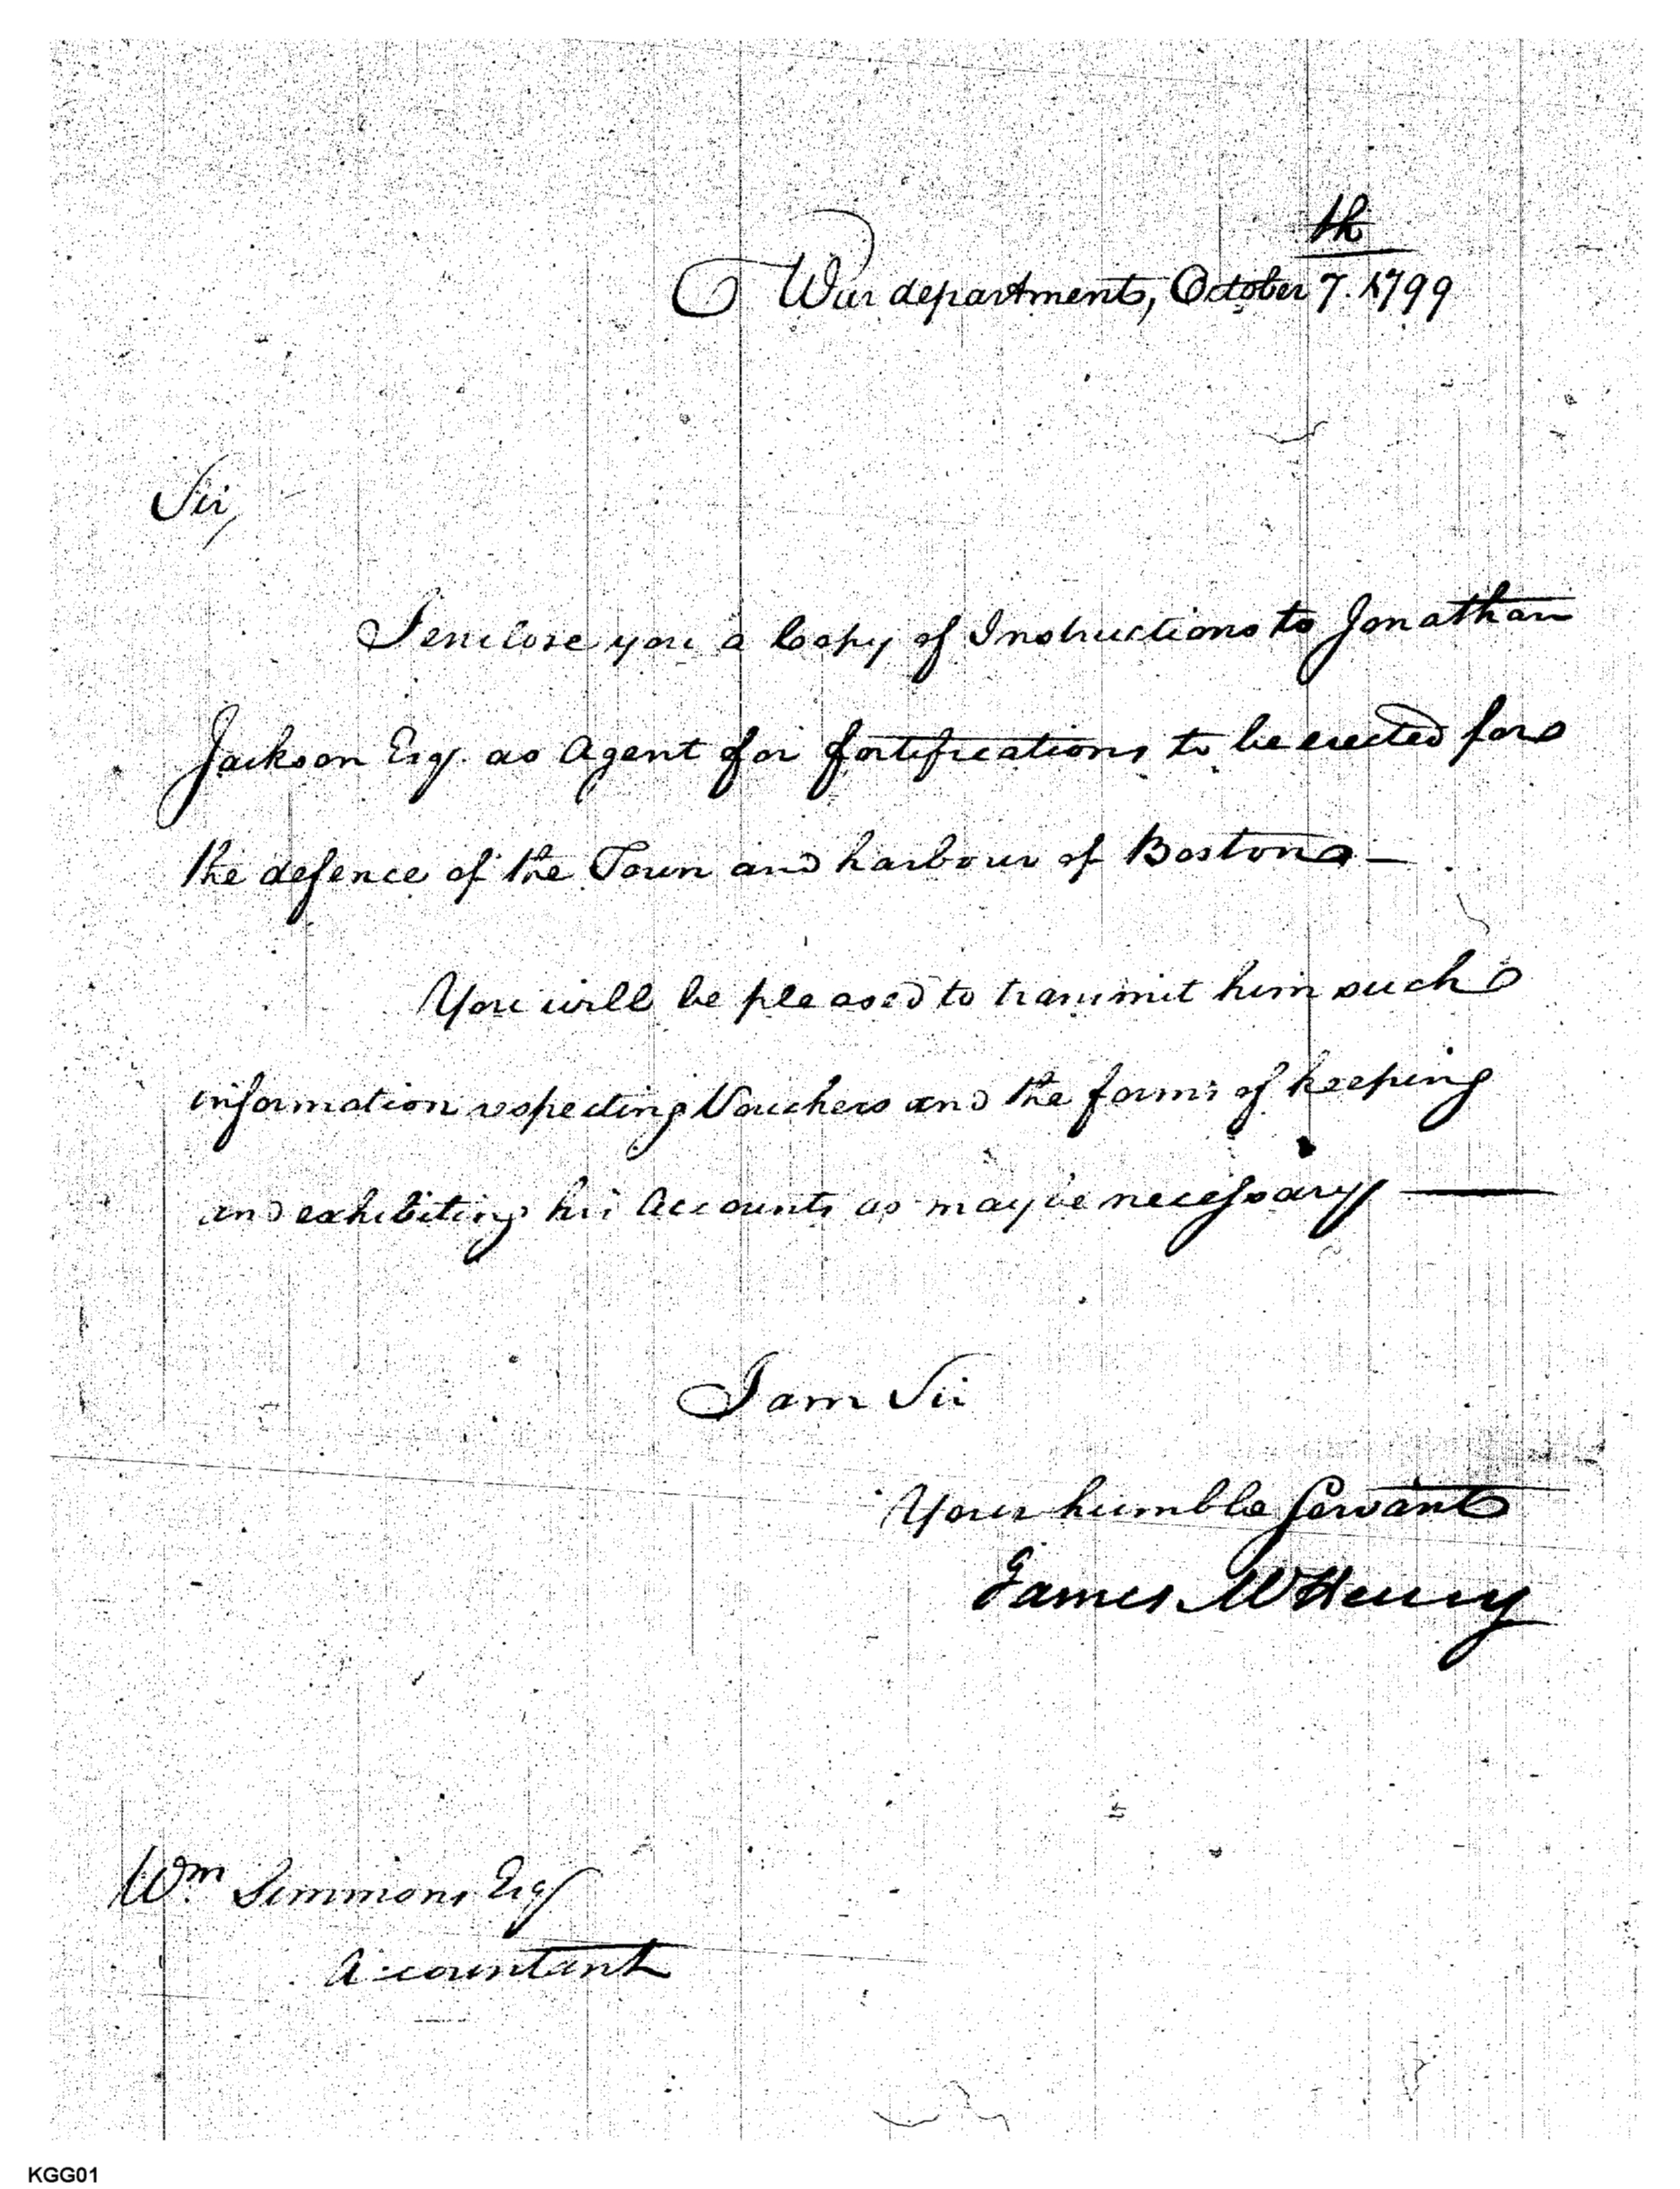 th
War department, October 7. 1799
Sir,
I enclose you a Copy of Instructions to Jonathan
Jackson Esq. as Agent for fortifications to be erected for
the defence of the Town and harbour of Boston —
You will be pleased to transmit him such
information respecting Vouchers and the forms of keeping
and exhibiting his Accounts as may be necessary —
I am Sir
Your humble Servant
James McHenry
Wm Simmons Esq
Accountant
KGG01